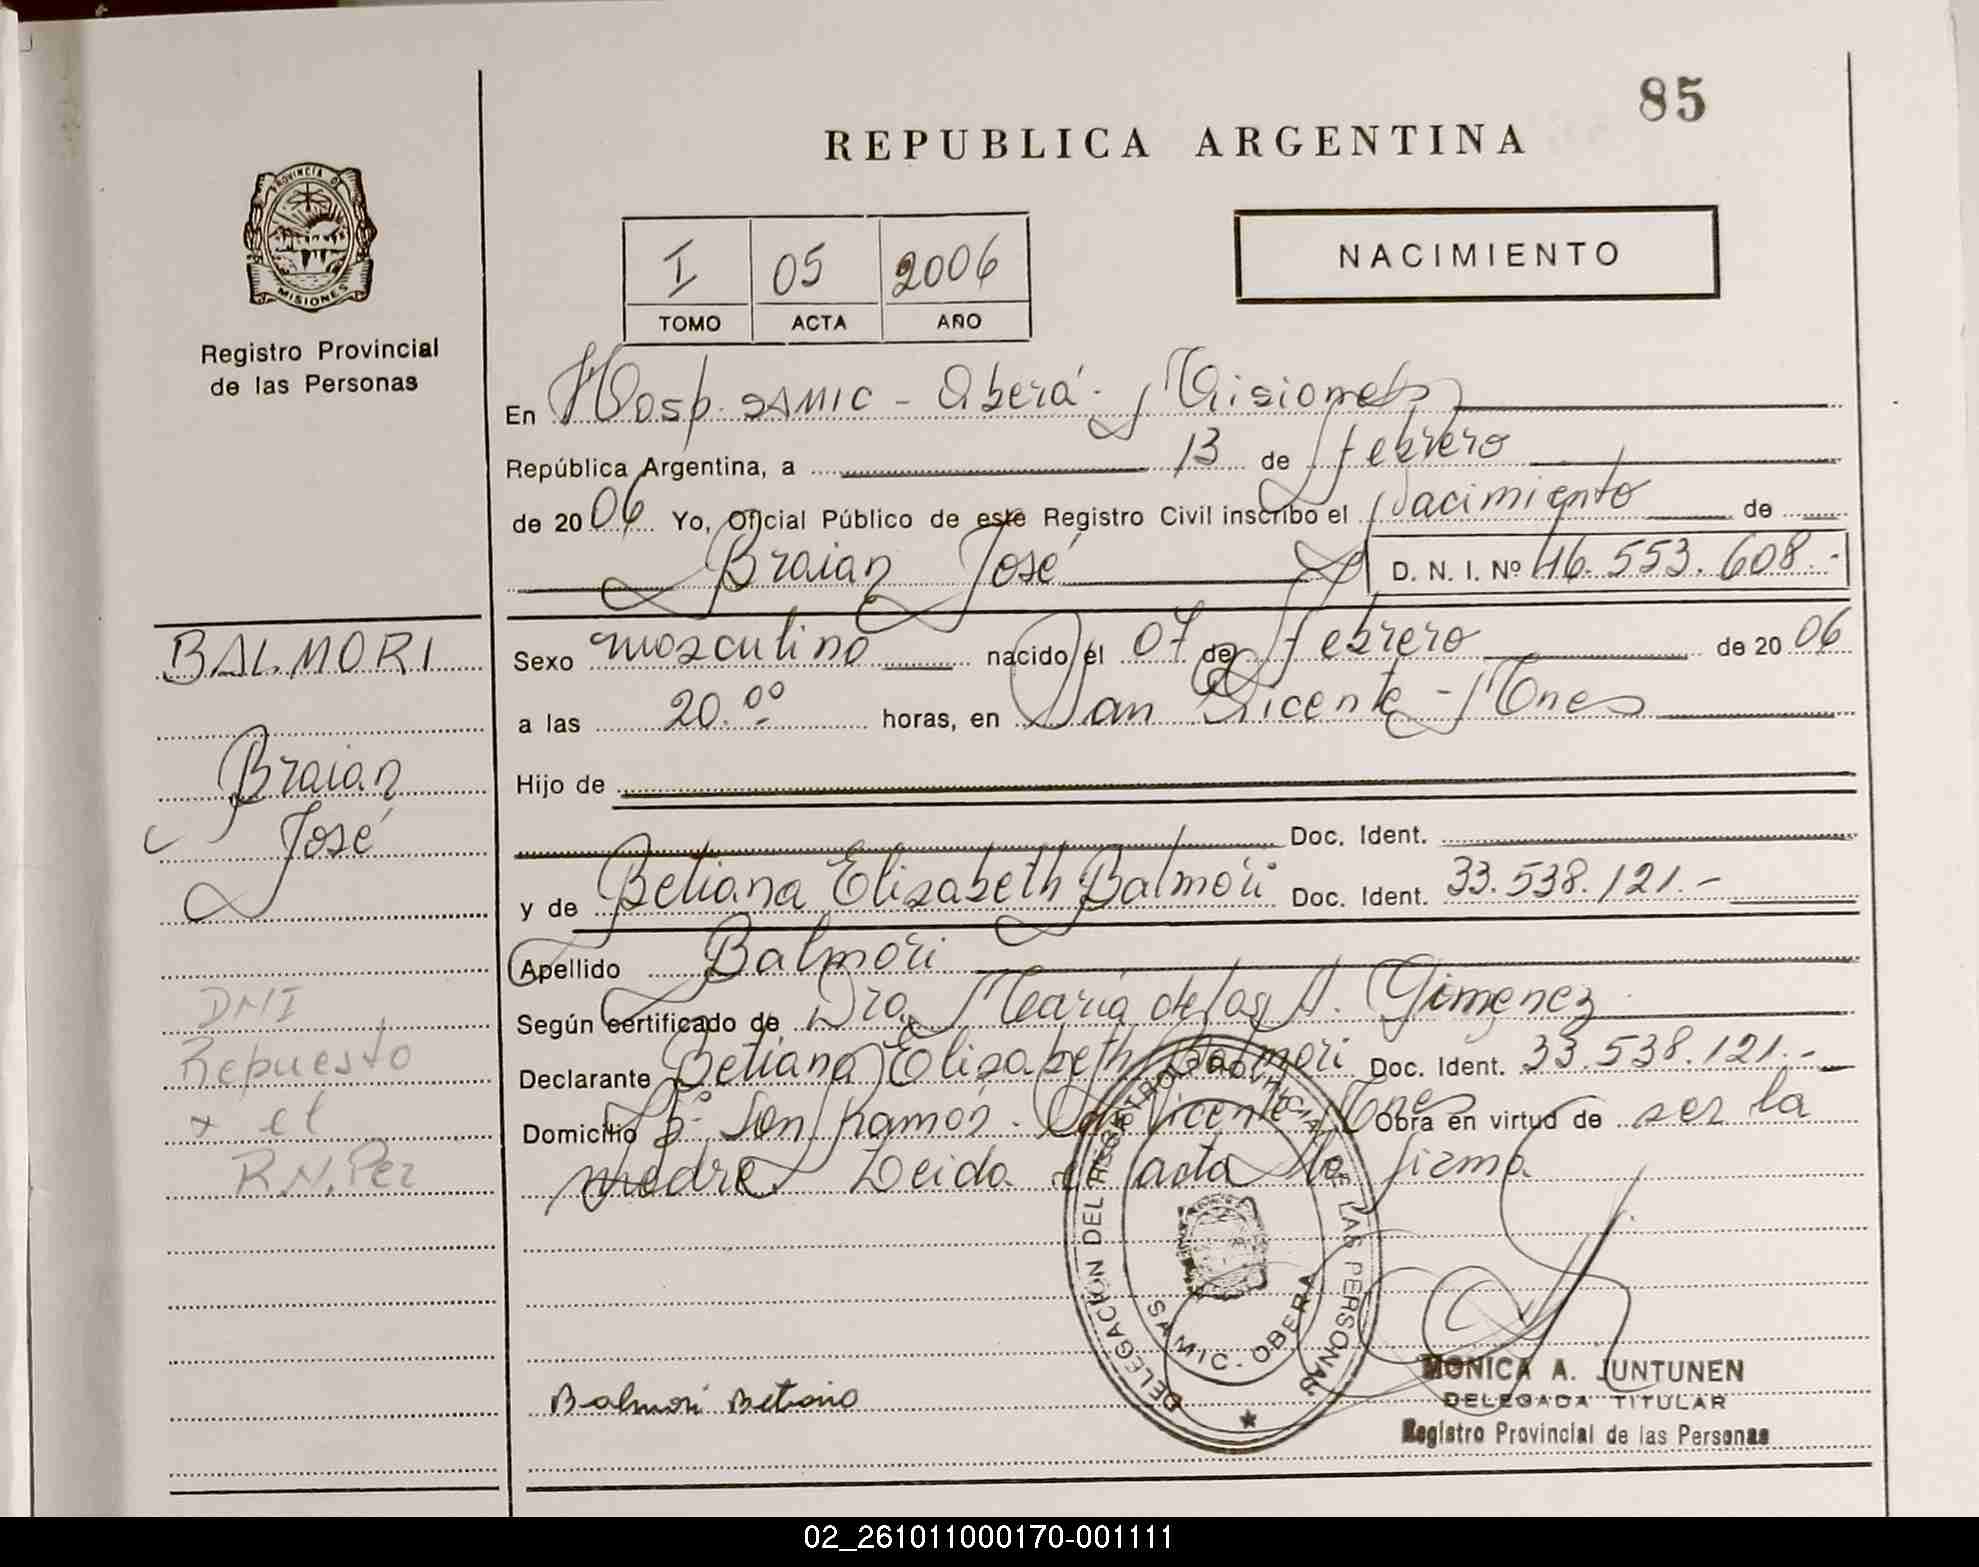 85
REPUBLICA ARGENTINA
PROVINCIA DE
MISIONES
Registro Provincial
de las Personas
I 05 2006
TOMO ACTA AÑO
NACIMIENTO
En Hosp. SAMIC - Oberá - Misiones
República Argentina, a 13 de febrero
de 2006 Yo, Oficial Público de este Registro Civil inscribo el Nacimiento de
Braian José D. N. I. Nº 46.553.608.-
BALMORI
Braian
José
DNI
Repuesto
x el
R.N.Per
Sexo masculino nacido el 07 de febrero de 2006
a las 20.ºº horas, en San Vicente - Mnes
Hijo de
Doc. Ident.
y de Betiana Elizabeth Balmori Doc. Ident. 33.538.121.-
Apellido Balmori
Según certificado de Dra. María de los A. Gimenez
Declarante Betiana Elizabeth Balmori Doc. Ident. 33.538.121.-
Domicilio Bº San Ramón. San Vicente Mnes Obra en virtud de ser la
madre Leida el acta la firma
DELEGACIÓN DEL REGISTRO PROVINCIAL DE LAS PERSONAS
SAMIC - OBERA
Balmori Betiana
MONICA A. JUNTUNEN
DELEGADA TITULAR
Registro Provincial de las Personas
02_261011000170-001111